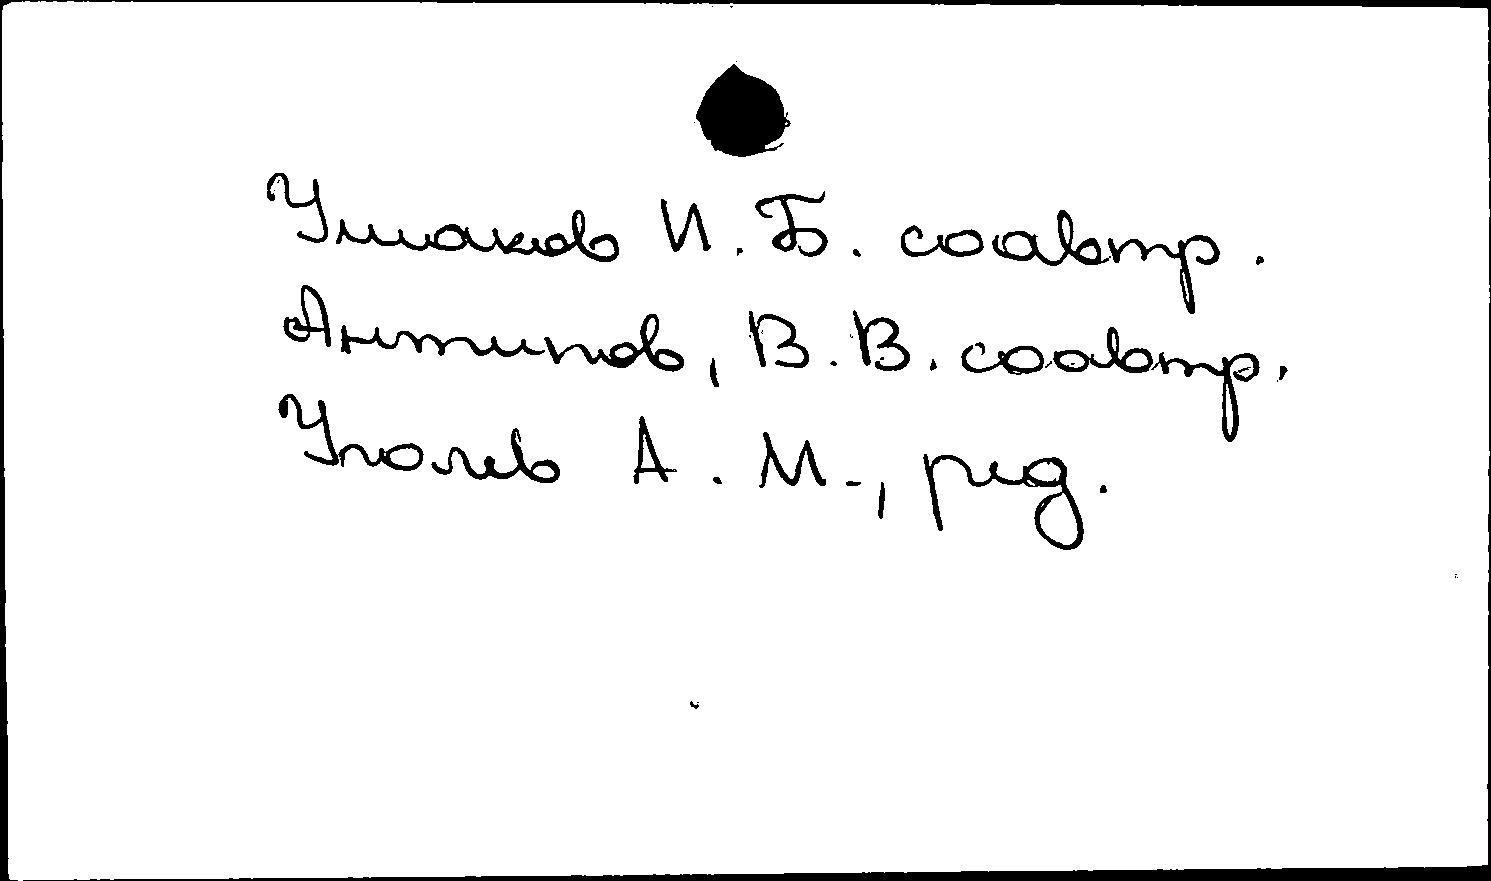 Ушаков И. Б. соавтр.
Антипов, В. В. соавтр.
Уголев А. М., ред.